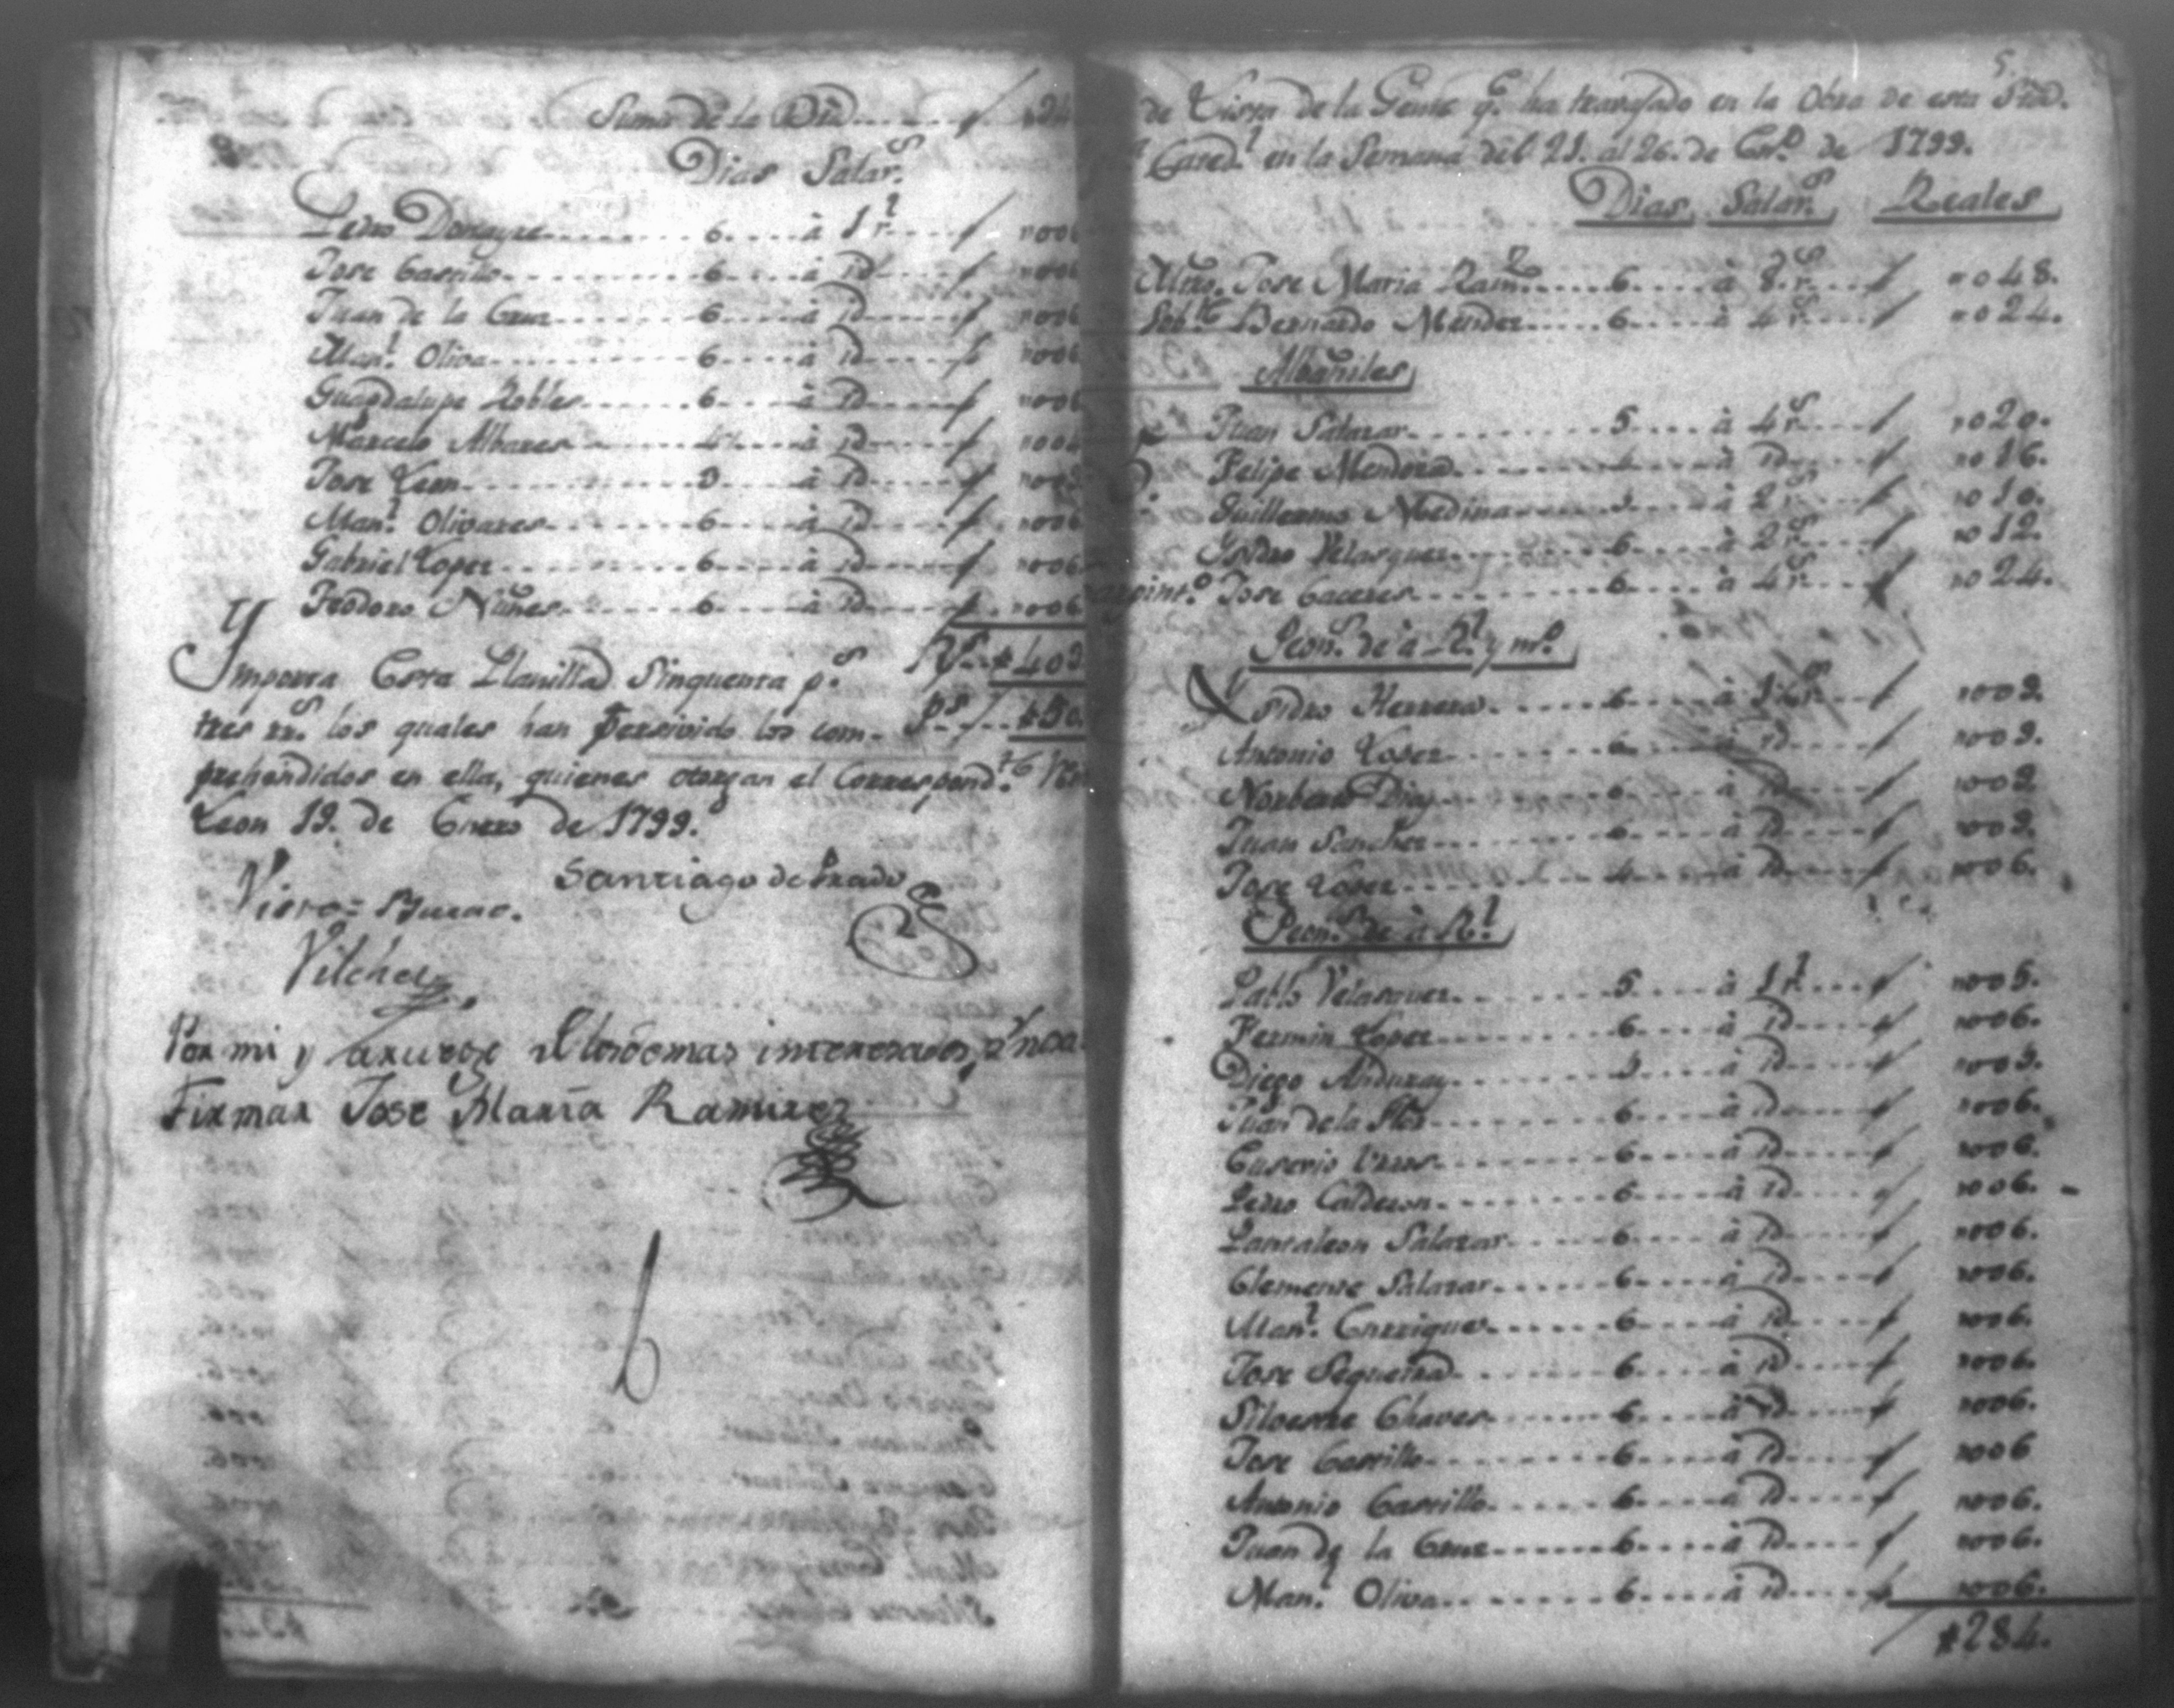 Suma de la Bta
Dias Salar.s
Pedro Donayre 6. à 1 r.l / 006
Jose Castillo 6. à id /
Juan de la Cruz 6 à id / 006
Man.l Oliva 6 à id / 006
Guadalupe Robles 6 à id / 006
Marcelo Albares 4 à id / 004
Jose Leon 3 à id / 003
Man.l Olivares 6 à id / 006
Gabriel Lopez 6 à id / 006
Teodoro Nuñes 6 à id / 006
R.s 403
Ymporta Esta Planilla Sinquenta p.s
tres rr.s los quales han persivido los com-
P.s / 50
prehendidos en ella, quienes otorgan el Correspond.te
Leon 19. de Enero de 1799.
Santiago de Prado
Vilches
Por mi y a ruego de los demas interesados, q.e no sa
Firmar Jose Maria Ramirez
6
5
de Lista de la Gente q.e ha travajado en la Obra de esta Sta
Cated.l en la Semana del 21. al 26. de En.o de 1799.
Dias Salar.s Reales
Mtro. Jose Maria Ram.z 6 à 8 r.s / 048.
Sob.te Bernardo Mendez 6 à 4 r.s / 024.
Albañiles
Juan Salazar 5 à 4 r.s / 020.
Felipe Mendoza 4 à id / 016.
Guillermo Medina 5 à 2 r.s / 010.
Ysidro Velasquez 6 à 2 r.s / 012.
Jose Caceres 6 à 4 r.s / 024.
Peon.s de à R.l y m.o
Ysidro Herrera 6 / 009.
Antonio Lopez 6 à id / 009.
Norberto Dias 6 à id / 009
Juan Sanches 6 à id / 009.
Jose Lopez 4 à id / 006.
Peon.s de à R.l
Pablo Velasquez 5 à 1 r.l / 005.
Fermin Lopez 6 à id / 006.
Diego Anduray 3 à id / 003.
Juan de la Flor 6 à id / 006.
Eusevio 6 à id / 006.
Pedro Calderon 6 à id / 006.
Pantaleon Salazar 6 à id / 006.
Clemente Salazar 6 à id / 006.
Man.l Enrriques 6 à id / 006.
Jose Sequeira 6 à id / 006.
Silvestre Chaves 6 à id / 006.
Jose Castillo 6 à id / 006
Antonio Castillo 6 à id / 006.
Juan de la Cruz 6 à id / 006.
Man.l Oliva 6 à id / 006.
/ 284.